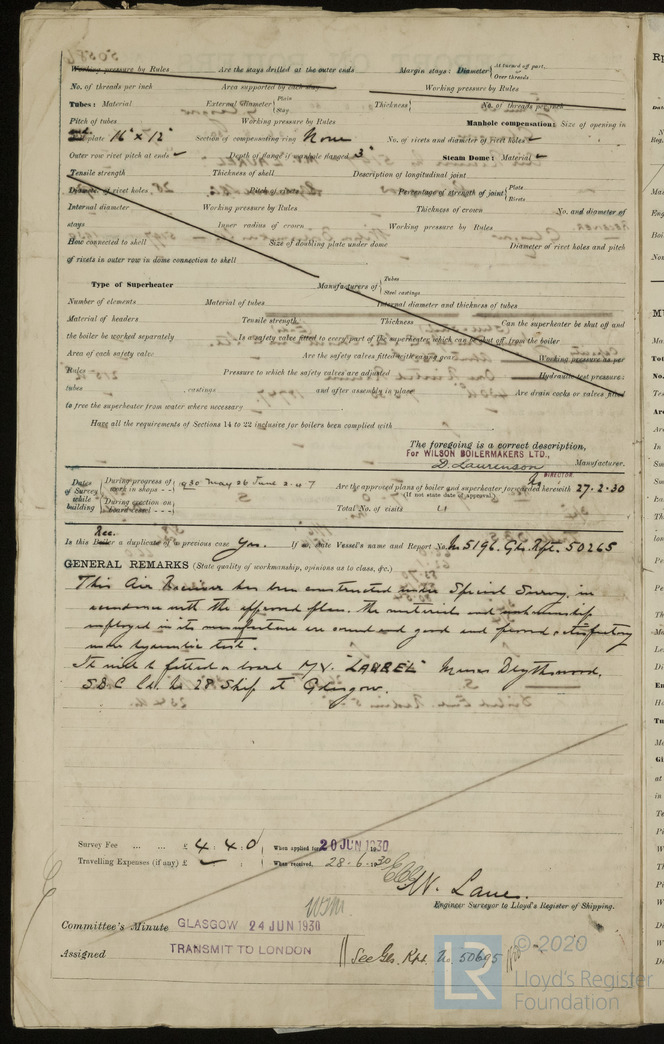 Working pressure by Rules Are the stays drilled at the outer ends Margin stays: Diameter { At turned off part, or Over threads
No. of threads per inch Area supported by each stay Working pressure by Rules
Tubes: Material External diameter { Plain Stay Thickness { No. of threads per inch
Pitch of tubes Working pressure by Rules Manhole compensation: Size of opening in
plate 16" x 12" Section of compensating ring None No. of rivets and diameter of rivet holes
Outer row rivet pitch at ends Depth of flange if manhole flanged 3" Steam Dome: Material
Tensile strength Thickness of shell Description of longitudinal joint
Diameter of rivet holes Pitch of rivets Percentage of strength of joint { Plate Rivets
Internal diameter Working pressure by Rules Thickness of crown No. and diameter of
stays Inner radius of crown Working pressure by Rules
How connected to shell Size of doubling plate under dome Diameter of rivet holes and pitch
of rivets in outer row in dome connection to shell
Type of Superheater Manufacturers of { Tubes Steel castings
Number of elements Material of tubes Internal diameter and thickness of tubes
Material of headers Tensile strength Thickness Can the superheater be shut off and
the boiler be worked separately Is a safety valve fitted to every part of the superheater which can be shut off from the boiler
Area of each safety valve Are the safety valves fitted with easing gear Working pressure as per
Rules Pressure to which the safety valves are adjusted Hydraulic test pressure:
tubes , castings and after assembly in place Are drain cocks or valves fitted
to free the superheater from water where necessary
Have all the requirements of Sections 14 to 22 inclusive for boilers been complied with
The foregoing is a correct description,
For WILSON BOILERMAKERS LTD.,
D. Laurenson Manufacturer.
DIRECTOR
Dates of Survey while building { During progress of work in shops - - } 1930 May 26 June 2. 4 7 Are the approved plans of boiler and superheater forwarded herewith 27.2.30
(If not state date of approval.)
{ During erection on board vessel - - - } Total No. of visits
Rec.
Is this Boiler a duplicate of a previous case Yes. If so, state Vessel's name and Report No. No 5196. Gls. Rpt. 50265
GENERAL REMARKS (State quality of workmanship, opinions as to class, &c.)
This Air Receiver has been constructed under Special Survey, in
accordance with the approved plan. The materials and workmanship
employed in its manufacture are sound and good and proved satisfactory
under hydraulic test.
It will be fitted on board M.V. "LAUREL" Messrs Blythswood,
S.B.C Ld. No 28 Ship at Glasgow.
Survey Fee ... ... £ 4 : 4 : 0 When applied for, 20 JUN 1930
Travelling Expenses (if any) £ : : When received, 28.6.1930
G. W. Lane.
Engineer Surveyor to Lloyd's Register of Shipping.
Committee's Minute GLASGOW 24 JUN 1930
Assigned TRANSMIT TO LONDON
See Gls. Rpt. No. 50695
© 2020
LR Lloyd's Register
Foundation